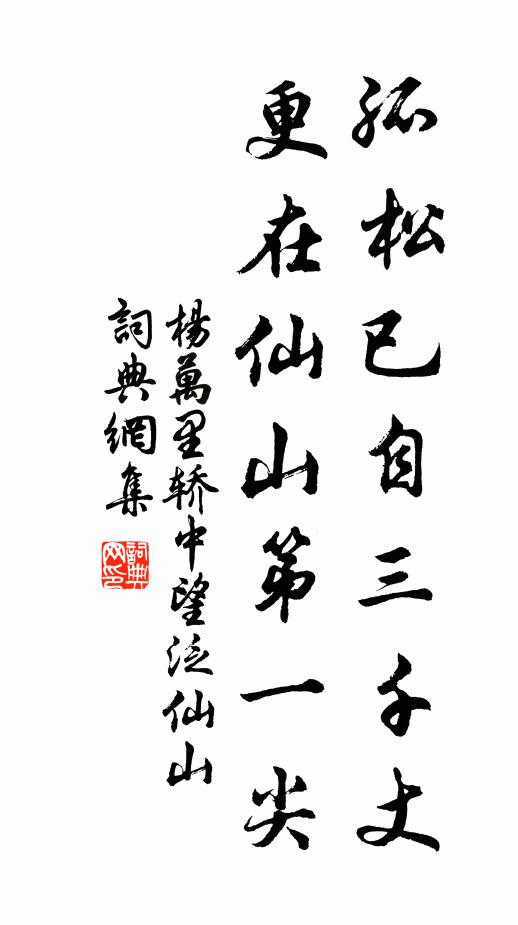 孤松已自三千丈
更在仙山第一尖
楊萬里轿中望泛仙山
詞典網集
詞典网印